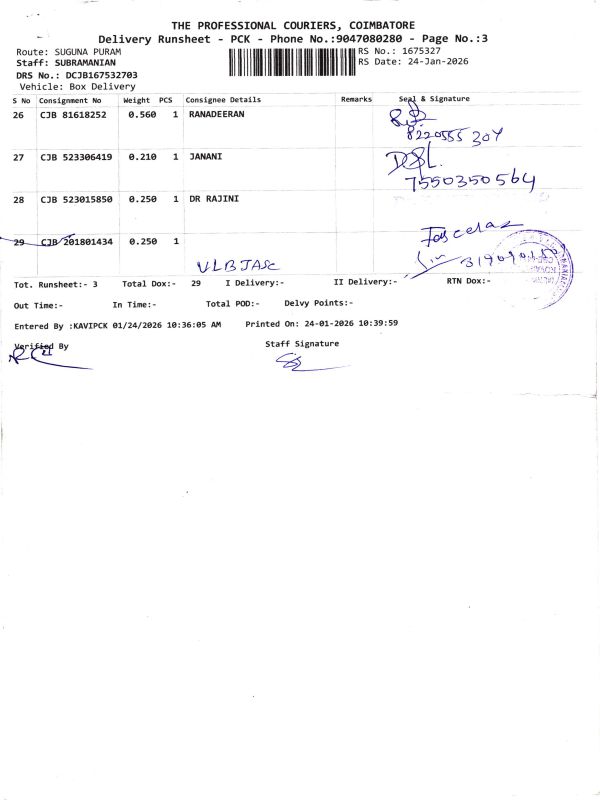 THE PROFESSIONAL COURIERS, COIMBATORE
Delivery Runsheet - PCK - Phone No.:9047080280 - Page No.:3
Route: SUGUNA PURAM
RS No.: 1675327
Staff: SUBRAMANIAN
RS Date: 24-Jan-2026
DRS No.: DCJB167532703
Vehicle: Box Delivery
S No Consignment No Weight PCS Consignee Details Remarks Seal & Signature
26 CJB 81618252 0.560 1 RANADEERAN
8220555 304
27 CJB 523306419 0.210 1 JANANI
7550350564
28 CJB 523015850 0.250 1 DR RAJINI
29 CJB 201801434 0.250 1
VLBJASC
Tot. Runsheet:- 3 Total Dox:- 29 I Delivery:- II Delivery:- RTN Dox:-
Out Time:- In Time:- Total POD:- Delvy Points:-
Entered By :KAVIPCK 01/24/2026 10:36:05 AM Printed On: 24-01-2026 10:39:59
Verified By Staff Signature